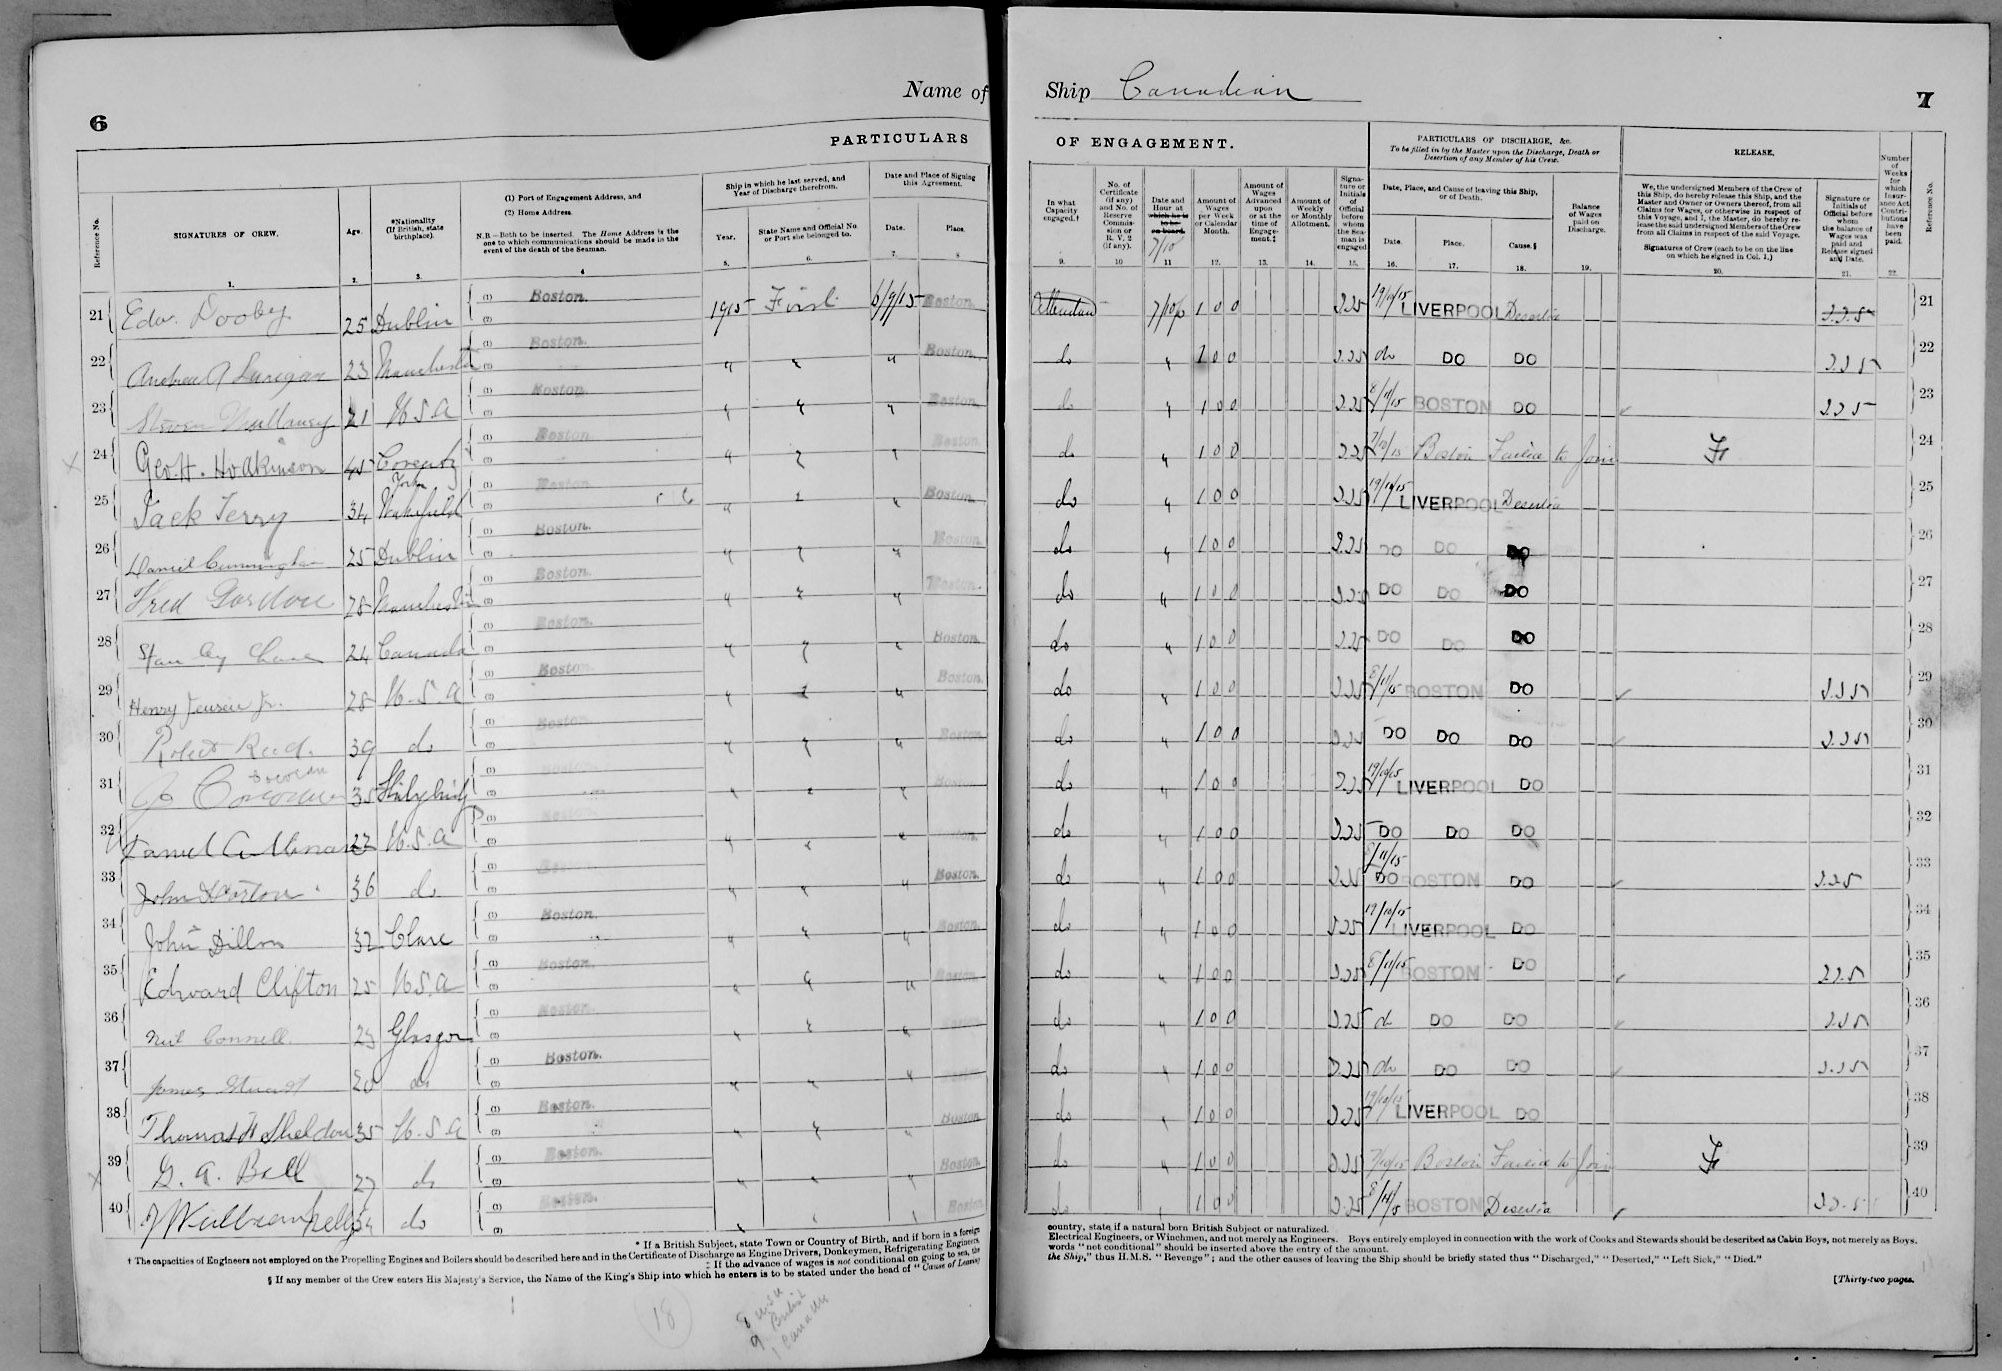 6
Name of
PARTICULARS
Reference No.
SIGNATURES OF CREW.
Age.
*Nationality (If British, state birthplace).
(1) Port of Engagement Address, and
(2) Home Address.
N.B.—Both to be inserted. The Home Address is the one to which communications should be made in the event of the death of the Seaman.
Ship in which he last served, and Year of Discharge therefrom.
Year.
State Name and Official No or Port she belonged to.
Date and Place of Signing this Agreement.
Date.
Place.
1. 2. 3. 4 5. 6. 7. 8
21 Edw. Dooby 25 Dublin (1) Boston. (2) 1915 First 6/9/15 Boston.
22 Andrew Lunigan 23 Manchester (1) Boston. (2) " " " Boston.
23 Steven Mullaney 21 U.S.A (1) Boston. (2) " " " Boston.
24 Geo H. Hodkinson 45 Coventry (1) Boston. (2) " " " Boston.
25 Jack Terry 34 York Wakefield (1) Boston. (2) " " " Boston.
26 Daniel Cunningham 25 Dublin (1) Boston. (2) " " " Boston.
27 Fred Gordon 28 Manchester (1) Boston. (2) " " " Boston.
28 Stanley Chase 24 Canada (1) Boston. (2) " " " Boston.
29 Henry Jensen Jr. 28 U.S.A (1) Boston. (2) " " " Boston.
30 Robert Reed. 39 do (1) Boston. (2) " " " Boston.
31 Corcoran 35 Stalybridge (1) Boston. (2) " " " Boston.
32 Daniel A 22 U.S.A (1) Boston. (2) " " " Boston.
33 John Horton 36 do (1) Boston. (2) " " " Boston.
34 John Dillon 32 Clare (1) Boston. (2) " " " Boston.
35 Edward Clifton 25 U.S.A (1) Boston. (2) " " " Boston.
36 Neil Connell 23 Glasgow (1) Boston. (2) " " " Boston.
37 James Stuart 20 do (1) Boston. (2) " " " Boston.
38 Thomas H Sheldon 35 U.S.A (1) Boston. (2) " " " Boston
39 G. A. Ball 27 do (1) Boston. (2) " " " Boston.
40 34 do (1) Boston. (2) " " " Boston.
* If a British Subject, state Town or Country of Birth, and if born in a foreign
† The capacities of Engineers not employed on the Propelling Engines and Boilers should be described here and in the Certificate of Discharge as Engine Drivers, Donkeymen, Refrigerating Engineers,
‡ If the advance of wages is not conditional on going to sea, the
§ If any member of the Crew enters His Majesty's Service, the Name of the King's Ship into which he enters is to be stated under the head of "Cause of Leaving
18
8 USA
9 British
1 Canada
Ship Canadian
7
OF ENGAGEMENT.
PARTICULARS OF DISCHARGE, &c.
To be filled in by the Master upon the Discharge, Death or Desertion of any Member of his Crew.
RELEASE.
In what Capacity engaged.†
No. of Certificate (if any) and No. of Reserve Commission or R. V. 2 (if any).
Date and Hour at which he is to be on board.
7/10
Amount of Wages per Week or Calendar Month.
Amount of Wages Advanced upon or at the time of Engagement.‡
Amount of Weekly or Monthly Allotment.
Signature or Initials of Official before whom the Seaman is engaged
Date, Place, and Cause of leaving this Ship, or of Death.
Date. Place. Cause.§
Balance of Wages paid on Discharge.
We, the undersigned Members of the Crew of this Ship, do hereby release this Ship, and the Master and Owner or Owners thereof, from all Claims for Wages, or otherwise in respect of this Voyage, and I, the Master, do hereby release the said undersigned Members of the Crew from all Claims in respect of the said Voyage.
Signatures of Crew (each to be on the line on which he signed in Col. 1.)
Signature or Initials of Official before whom the balance of Wages was paid and Release signed and Date.
Number of Weeks for which Insurance Act Contributions have been paid.
Reference No.
9. 10 11 12. 13. 14. 15. 16. 17. 18. 19. 20. 21. 22.
Attendant 7/10 1 0 0 19/10/15 LIVERPOOL Desertia 21
do " 1 0 0 do DO DO 22
do " 1 0 0 8/11/15 BOSTON DO 23
do " 1 0 0 7/10/15 Boston Failed to Join 24
do " 1 0 0 19/10/15 LIVERPOOL Desertia 25
do " 1 0 0 DO DO DO 26
do " 1 0 0 DO DO DO 27
do " 1 0 0 DO DO DO 28
do " 1 0 0 8/11/15 BOSTON DO 29
do " 1 0 0 DO DO DO 30
do " 1 0 0 19/10/15 LIVERPOOL DO 31
do " 1 0 0 DO DO DO 32
do " 1 0 0 8/11/15 DO BOSTON DO 33
do " 1 0 0 19/10/15 LIVERPOOL DO 34
do " 1 0 0 8/11/15 BOSTON DO 35
do " 1 0 0 do DO DO 36
do " 1 0 0 do DO DO 37
do " 1 0 0 19/10/15 LIVERPOOL DO 38
do " 1 0 0 7/10/15 Boston Failed to Join 39
do " 1 0 0 8/11/5 BOSTON Desertia 40
country, state if a natural born British Subject or naturalized.
Electrical Engineers, or Winchmen, and not merely as Engineers. Boys entirely employed in connection with the work of Cooks and Stewards should be described as Cabin Boys, not merely as Boys.
words "not conditional" should be inserted above the entry of the amount.
the Ship," thus H.M.S. "Revenge"; and the other causes of leaving the Ship should be briefly stated thus "Discharged," "Deserted," "Left Sick," "Died."
[Thirty-two pages.